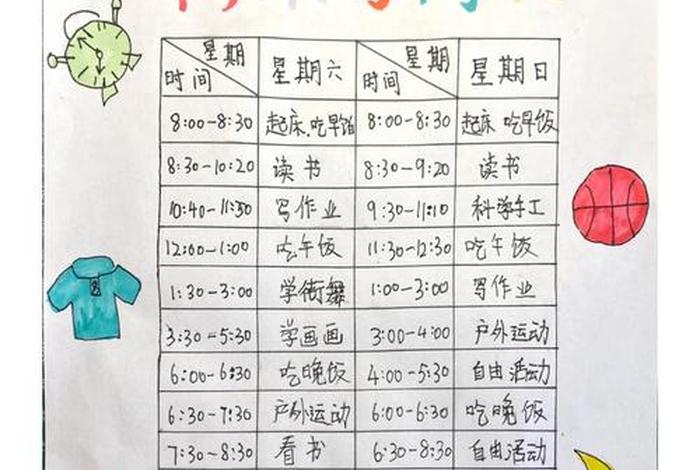 星期 星期
时间 星期六 时间 星期日
8:00-8:30 起床.吃早饭 8:00-8:30 起床 吃早饭
8:30-10:20 读书 8:30-9:20 读书
10:40-11:50 写作业 9:30-11:10 科学手工
12:00-1:00 吃午饭 11:30-12:30 吃午饭
1:30-3:00 学街舞 1:00-3:00 写作业
3:30-5:30 学画画 3:00-4:00 户外运动
6:00-6:30 吃晚饭 4:00-5:30 自由活动
6:30-7:30 户外运动 6:00-6:30 吃晚饭
7:30-8:30 看书 6:30-8:30 自由活动